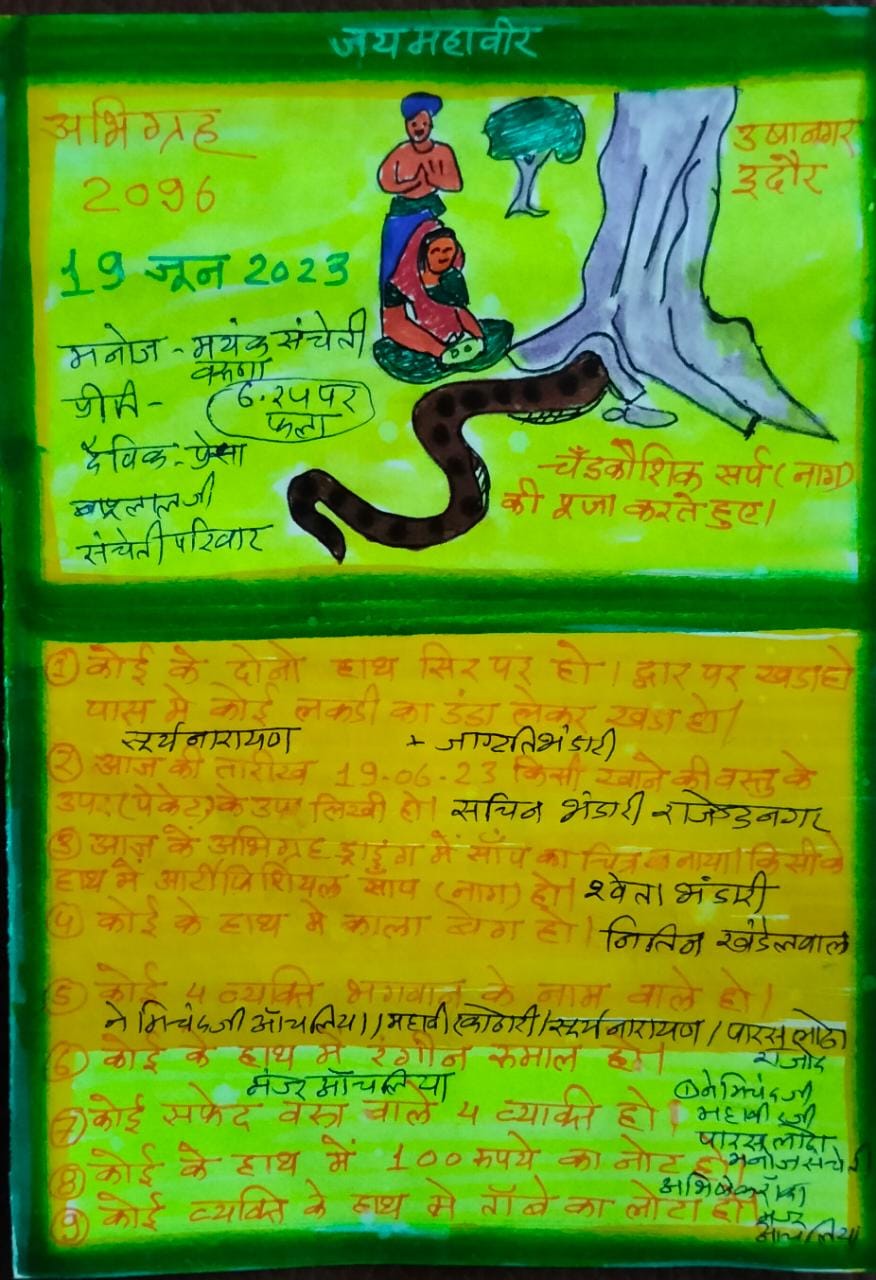 जय महावीर
अभिग्रह
2096
उषानगर
इंदौर
19 जून 2023
मनोज - मयंक संचेती
वरुणा
6.24 पर
फला
दैविक -
बाबूलालजी
संचेती परिवार
चँडकौशिक सर्प (नाग)
की पूजा करते हुए।
① कोई के दोनो हाथ सिर पर हो। द्वार पर खडा हो
पास मे कोई लकडी का डंडा लेकर खडा हो।
सूर्यनारायण + जागृति भंडारी
② आज की तारीख 19-06-23 किसी खाने की वस्तु के
उपर (पेकेट) के उपर लिखी हो। सचिन भंडारी राजेन्द्रनगर
③ आज के अभिग्रह ड्राइंग में साँप का चित्र बनाया। किसीके
हाथ में आर्टीफिशियल साँप (नाग) हो। श्वेता भंडारी
④ कोई के हाथ मे काला बेग हो।
नितिन खंडेलवाल
⑤ कोई 4 व्यक्ति भगवान के नाम वाले हो।
नेमिचंदजी आँचलिया / महावीर कोठारी / सूर्यनारायण / पारस लोढा
⑥ कोई के हाथ में रंगीन रुमाल हो।
मंजू आँचलिया
⑦ कोई सफेद वस्त्र वाले 4 व्यक्ति हो
① नेमिचंदजी
महावीरजी
पारस लोढा
⑧ कोई के हाथ में 100 रुपये का नोट हो
मनोज संचेती
⑨ कोई व्यक्ति के हाथ मे ताँबे का लोटा हो।
मंजू
आँचलिया